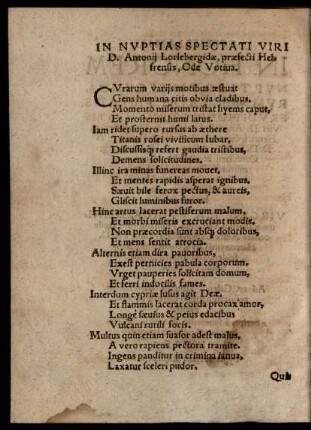 IN NVPTIAS SPECTATI VIRI
D. Antonij Lorlebergidæ, præfecti Hel-
frensis, Ode Votiua.
CVrarum varijs motibus æstuat
Gens humana citis obvia cladibus.
Momento miserum tristat hyems caput,
Et prosternit humi latus.
Iam ridet supero rursus ab æthere
Titanis rosei vivificum lubar,
Discussisq; refert gaudia tristibus,
Demens solicitudines.
Illinc ira minas funereas mouet,
Et mentes rapidis asperat ignibus,
Sæuit bile ferox pectus, & aureis,
Gliscit luminibus furor.
Hinc artus lacerat pestiferum malum,
Et morbi miseris excruciant modis,
Non præcordia sunt absq; doloribus,
Et mens sentit atrocia.
Alternis etiam dira pauoribus,
Exest pernicies pabula corporum.
Vrget pauperies solicitam domum,
Et ferri indocilis fames.
Interdum cypriæ lusus agit Deæ.
Et flammis lacerat corda procax amor,
Longè sæusus & peius edacibus
Vulcani rutili focis.
Multus quin etiam suasor adest malus,
A vero rapiens pectora tramite.
Ingens panditur in crimina ianua,
Laxatur sceleri pudor.